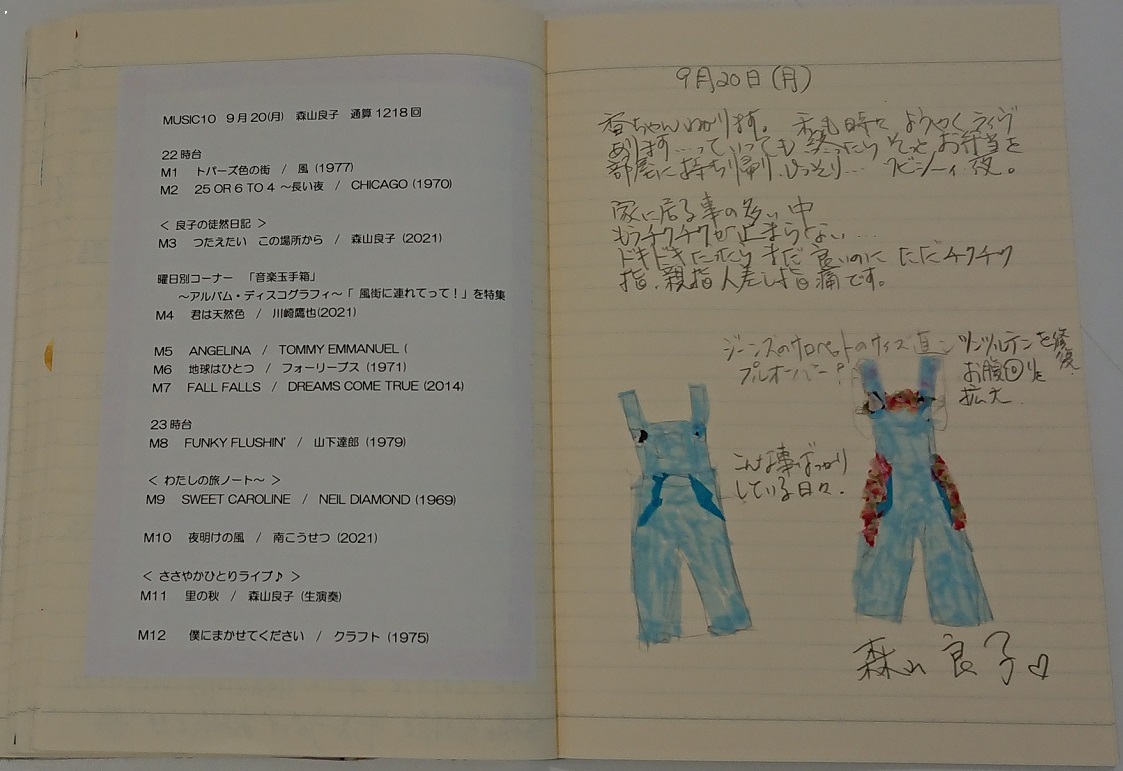 MUSIC10 9月20(月) 森山良子 通算1218回
22時台
M1 トパーズ色の街 / 風 (1977)
M2 25 OR 6 TO 4 ～長い夜 / CHICAGO (1970)
< 良子の徒然日記 >
M3 つたえたい この場所から / 森山良子 (2021)
曜日別コーナー 「音楽玉手箱」
～アルバム・ディスコグラフィ～「 風街に連れてって！」を特集
M4 君は天然色 / 川崎鷹也(2021)
M5 ANGELINA / TOMMY EMMANUEL (
M6 地球はひとつ / フォーリーブス (1971)
M7 FALL FALLS / DREAMS COME TRUE (2014)
23時台
M8 FUNKY FLUSHIN' / 山下達郎 (1979)
< わたしの旅ノート～ >
M9 SWEET CAROLINE / NEIL DIAMOND (1969)
M10 夜明けの風 / 南こうせつ (2021)
< ささやかひとりライブ♪ >
M11 里の秋 / 森山良子 (生演奏)
M12 僕にまかせてください / クラフト (1975)
9月20日(月)
ちゃんわかります。私も時々ようやくライヴ
あります…っていっても終ったらそっとお弁当を
部屋に持ち帰り、ひっそり… ロビシーィ夜。
家に居る事の多い中
もうチクチクが止まらない…
ドキドキだったらまだ良いのにただチクチク
指、親指人差し指痛です。
ジーンズのサロペットのサイズ直し
プルオーバー?
ツンツルテンを修復
お腹回りを
拡大
こんな事ばっかり
している日々.
森山良子♡